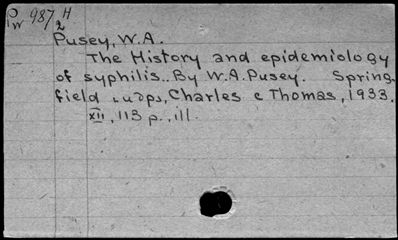 Pw 987 H
2
Pusey, W.A.
The History and epidemiology
of syphilis.. By W.A. Pusey. Spring-
field Charles C Thomas, 1933.
xii, 113 p., ill.